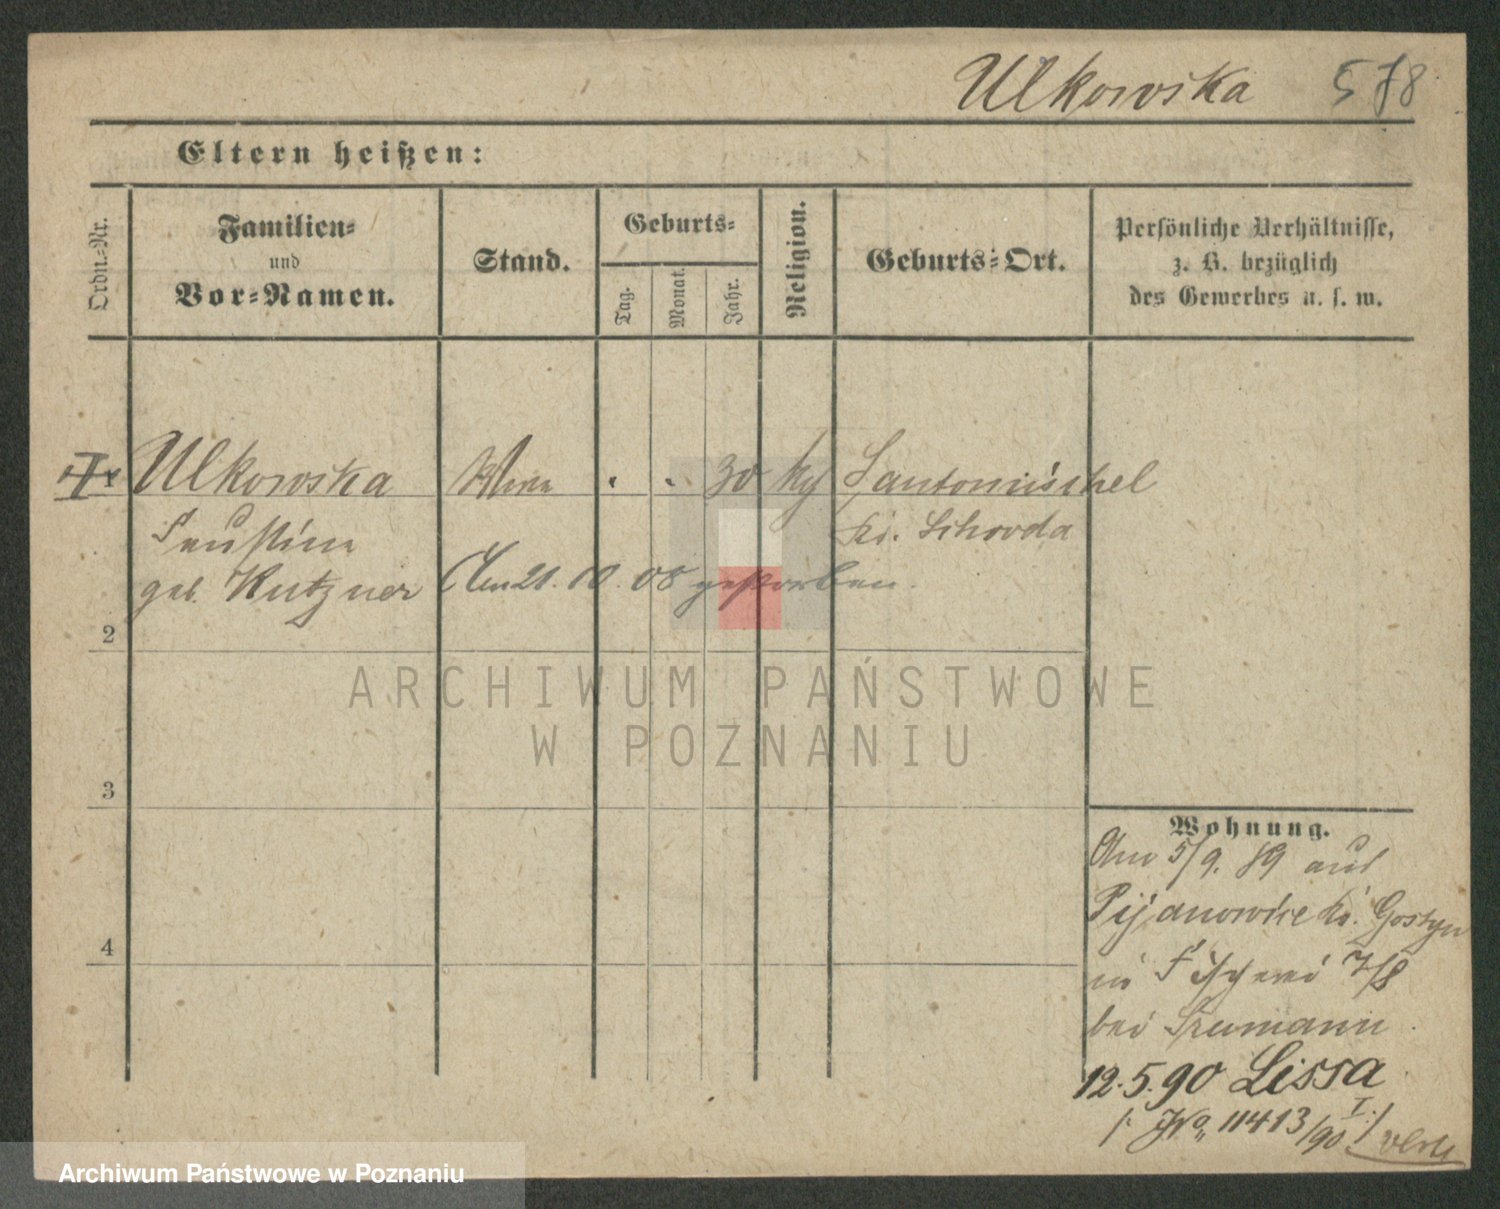 Ulkowska 578
Eltern heißen:
Ordn.-Nr.
Familien-
und
Vor-Namen.
Stand.
Geburts-
Tag.
Monat.
Jahr.
Religion.
Geburts-Ort.
Persönliche Verhältnisse,
z. B. bezüglich
des Gewerbes u. s. w.
Ulkowska Wwe . . 30 kg Santomischel
Faustine Kr. Schroda
geb. Kutzner Am 21. 10. 08 gestorben.
2
3
4
Wohnung.
Am 5/9. 89 aus
Pijanowice Kr. Gostyn
in Fischerei 7/8
bei
12.5.90 Lissa
/: No. 11413/90 I :/
ARCHIWUM PAŃSTWOWE
W POZNANIU
Archiwum Państwowe w Poznaniu